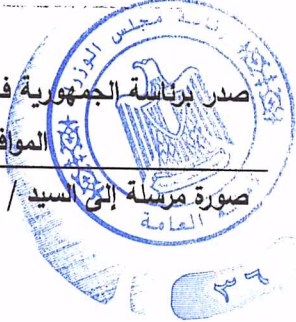 رئاسة مجلس الوزر
صدر برئاسة الجمهورية ف
المواف
صورة مرسلة إلى السيد /
العامة